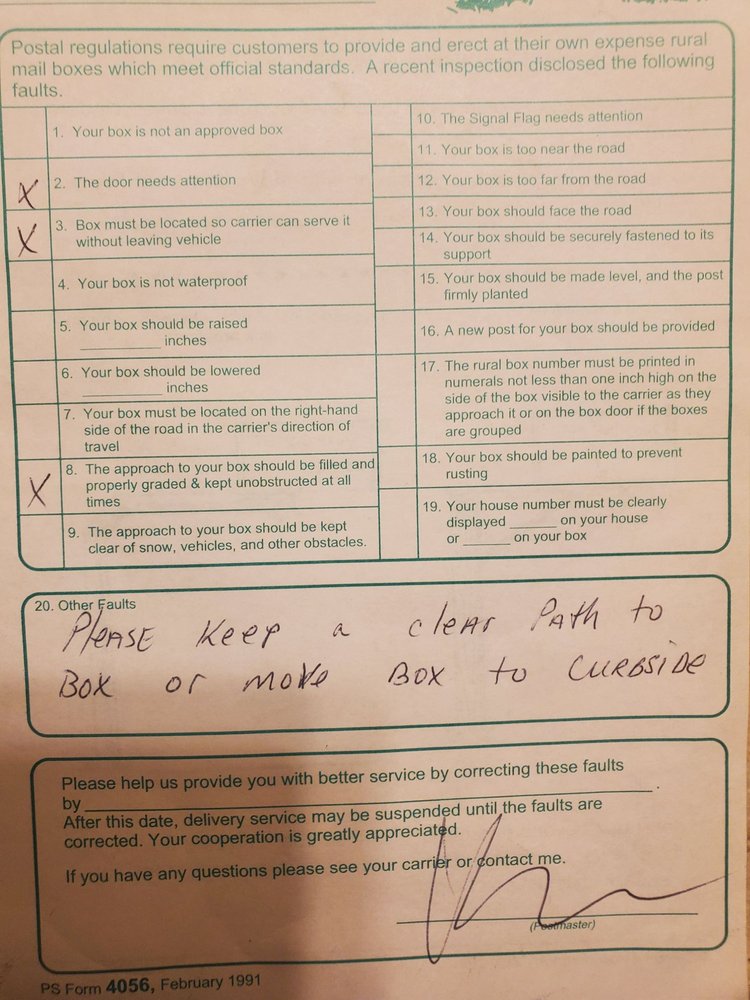 Postal regulations require customers to provide and erect at their own expense rural
mail boxes which meet official standards. A recent inspection disclosed the following
faults.
1. Your box is not an approved box
X 2. The door needs attention
X 3. Box must be located so carrier can serve it
without leaving vehicle
4. Your box is not waterproof
5. Your box should be raised
_________ inches
6. Your box should be lowered
_________ inches
7. Your box must be located on the right-hand
side of the road in the carrier's direction of
travel
X 8. The approach to your box should be filled and
properly graded & kept unobstructed at all
times
9. The approach to your box should be kept
clear of snow, vehicles, and other obstacles.
10. The Signal Flag needs attention
11. Your box is too near the road
12. Your box is too far from the road
13. Your box should face the road
14. Your box should be securely fastened to its
support
15. Your box should be made level, and the post
firmly planted
16. A new post for your box should be provided
17. The rural box number must be printed in
numerals not less than one inch high on the
side of the box visible to the carrier as they
approach it or on the box door if the boxes
are grouped
18. Your box should be painted to prevent
rusting
19. Your house number must be clearly
displayed ______ on your house
or ______ on your box
20. Other Faults
PLEASE KEEP a cleAr PATh to
BOX or move BOX to CURBSIDE
Please help us provide you with better service by correcting these faults
by ______________________________.
After this date, delivery service may be suspended until the faults are
corrected. Your cooperation is greatly appreciated.
If you have any questions please see your carrier or contact me.
(Postmaster)
PS Form 4056, February 1991